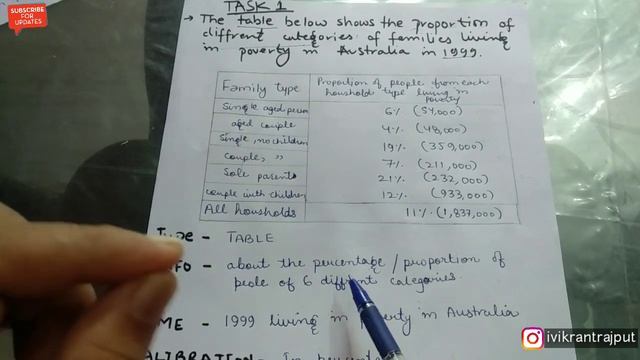 SUBSCRIBE
FOR
UPDATES
TASK 1
→ The table below shows the proportion of
diffrent categories of families living
in poverty in Australia in 1999.
Family type Proportion of people from each
houshold type living in
poverty
Single aged person 6% (54,000)
aged couple 4% (48,000)
Single, no children 19% (359,000)
couple, " 7% (211,000)
Sole parent 21% (232,000)
couple with children 12% (933,000)
All housholds 11% (1,837,000)
Type - TABLE
FO - about the percentage / proportion of
peole of 6 diffrent categories.
ME - 1999 living in poverty in Australia
ALIBRATION - In
ivikrantrajput